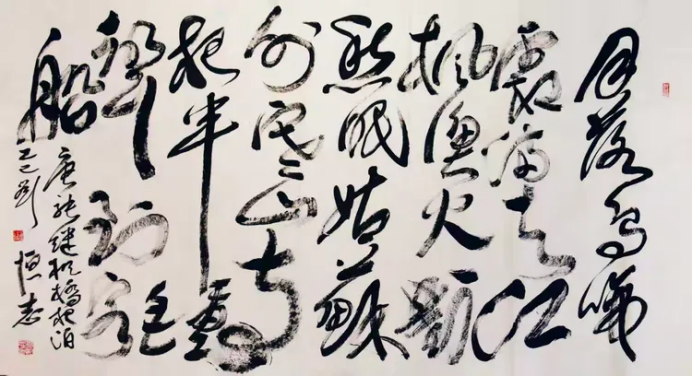 月落烏啼
霜滿天江
楓漁火對
愁眠姑蘇
外寒山寺
夜半鐘
聲到客
船
唐張繼楓橋夜泊
乙巳劉恒志